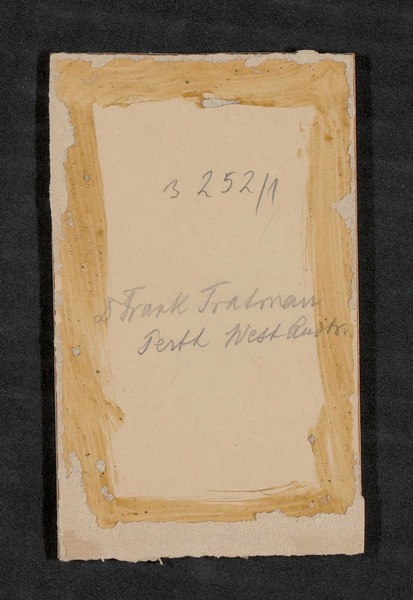 B 252/1
Dr Frank Tratman
Perth West Austr.